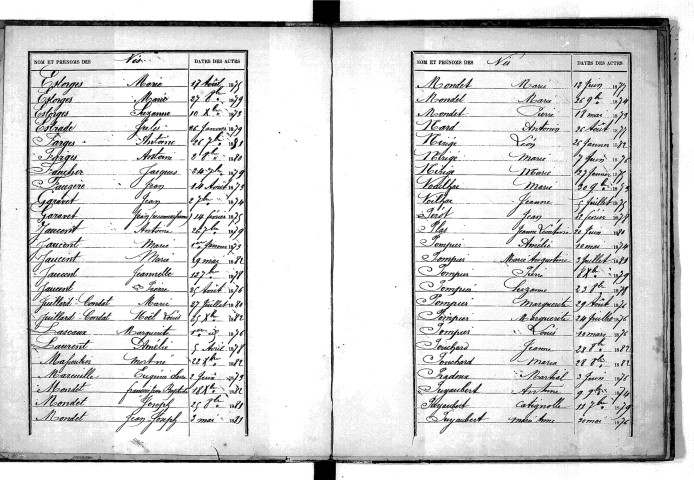 NOM ET PRÉNOMS DES Nés DATES DES ACTES
Estorges Marie 17 Août 1875
Estorges Marie 27 8bre 1879
Estorges Suzanne 10 Xbre 1873
Estrade Jules 26 Janvier 1879
Farges Antoine 26 7bre 1881
Farges Antoine 2 8bre 1880
Faucher Jacques 24 7bre 1879
Faugère Jean 14 Août 1873
Garavet Jean 2 7bre 1874
Garavet Jean 14 février 1875
Jaucent Antoine 26 7bre 1879
Jaucent Marie Janvier 1873
Jaucent Marie 29 mai 1882
Jaucent Jeannette 12 7bre 1878
Jaucent Pierre 25 Août 1876
Juillard-Condat Marie 27 Juillet 1880
Juillard-Condat Noël Louis 25 Xbre 1882
Lascaux Marguerite 1876
Laurent Amélie 5 Avril 1878
Mafaucher mort né 22 Xbre 1882
Mareuille Eugénie 2 Juin 1873
Mondet françois Jean Baptiste 18 Xbre 1882
Mondet Joseph 25 8bre 1881
Mondet Jean Joseph 3 mai 1881
NOM ET PRÉNOMS DES Nés DATES DES ACTES
Mondet Marie 12 Juin 1877
Mondet Marie 25 9bre 1874
Mondet Pierre 18 mai 1873
Nard Antoine 25 Août 1877
Nérige Léon 25 Janvier 1882
Nérige Marie 7 Juin 1876
Nérige Marie 27 Janvier 1875
Noailhac Marie 30 9bre 1873
Noilhac Jeanne 5 Juillet 1875
Pérot Jean 12 février 1878
Plas Jeanne 21 Juin 1880
Pompier Amélie 10 mai 1874
Pompier Marie Augustine 3 Juillet 1881
Pompier Pierre 1879
Pompier Suzanne 23 8bre 1878
Pompier Marguerite 29 Août 1876
Pompier Marguerite 24 Juillet 1876
Pompier Louis 10 mars 1876
Pouchard Jeanne 28 8bre 1882
Pouchard Maria 28 8bre 1882
Pradoux Martial 3 Juin 1876
Puyaubert Antoine 9 9bre 1874
Puyaubert Catignolle 11 7bre 1879
Puyaubert marie Anne 30 mai 1876